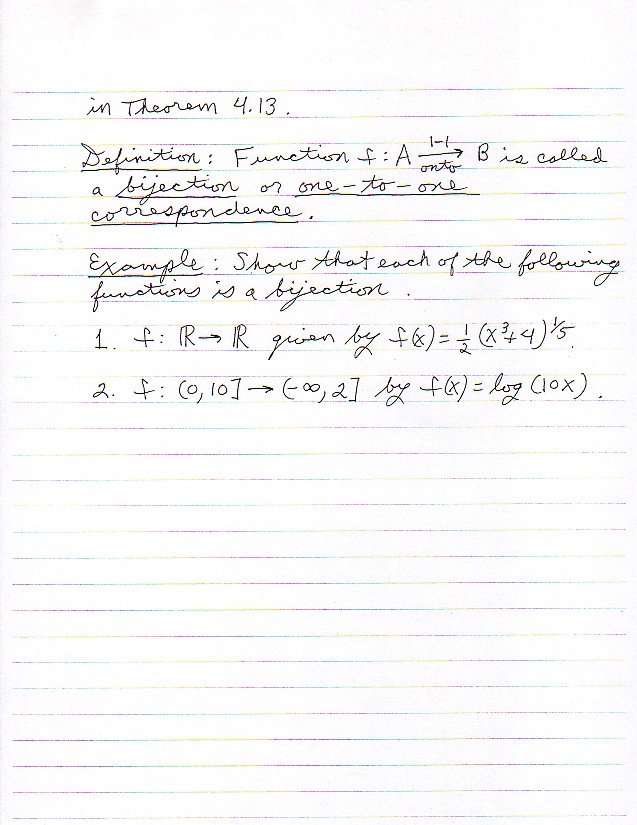 in Theorem 4.13.
Definition: Function f: A 1-1→onto B is called
a bijection or one-to-one
correspondence.
Example: Show that each of the following
functions is a bijection.
1. f: ℝ→ℝ given by f(x) = 1/2 (x³+4)^1/5.
2. f: (0,10] → (-∞,2] by f(x) = log (10x).